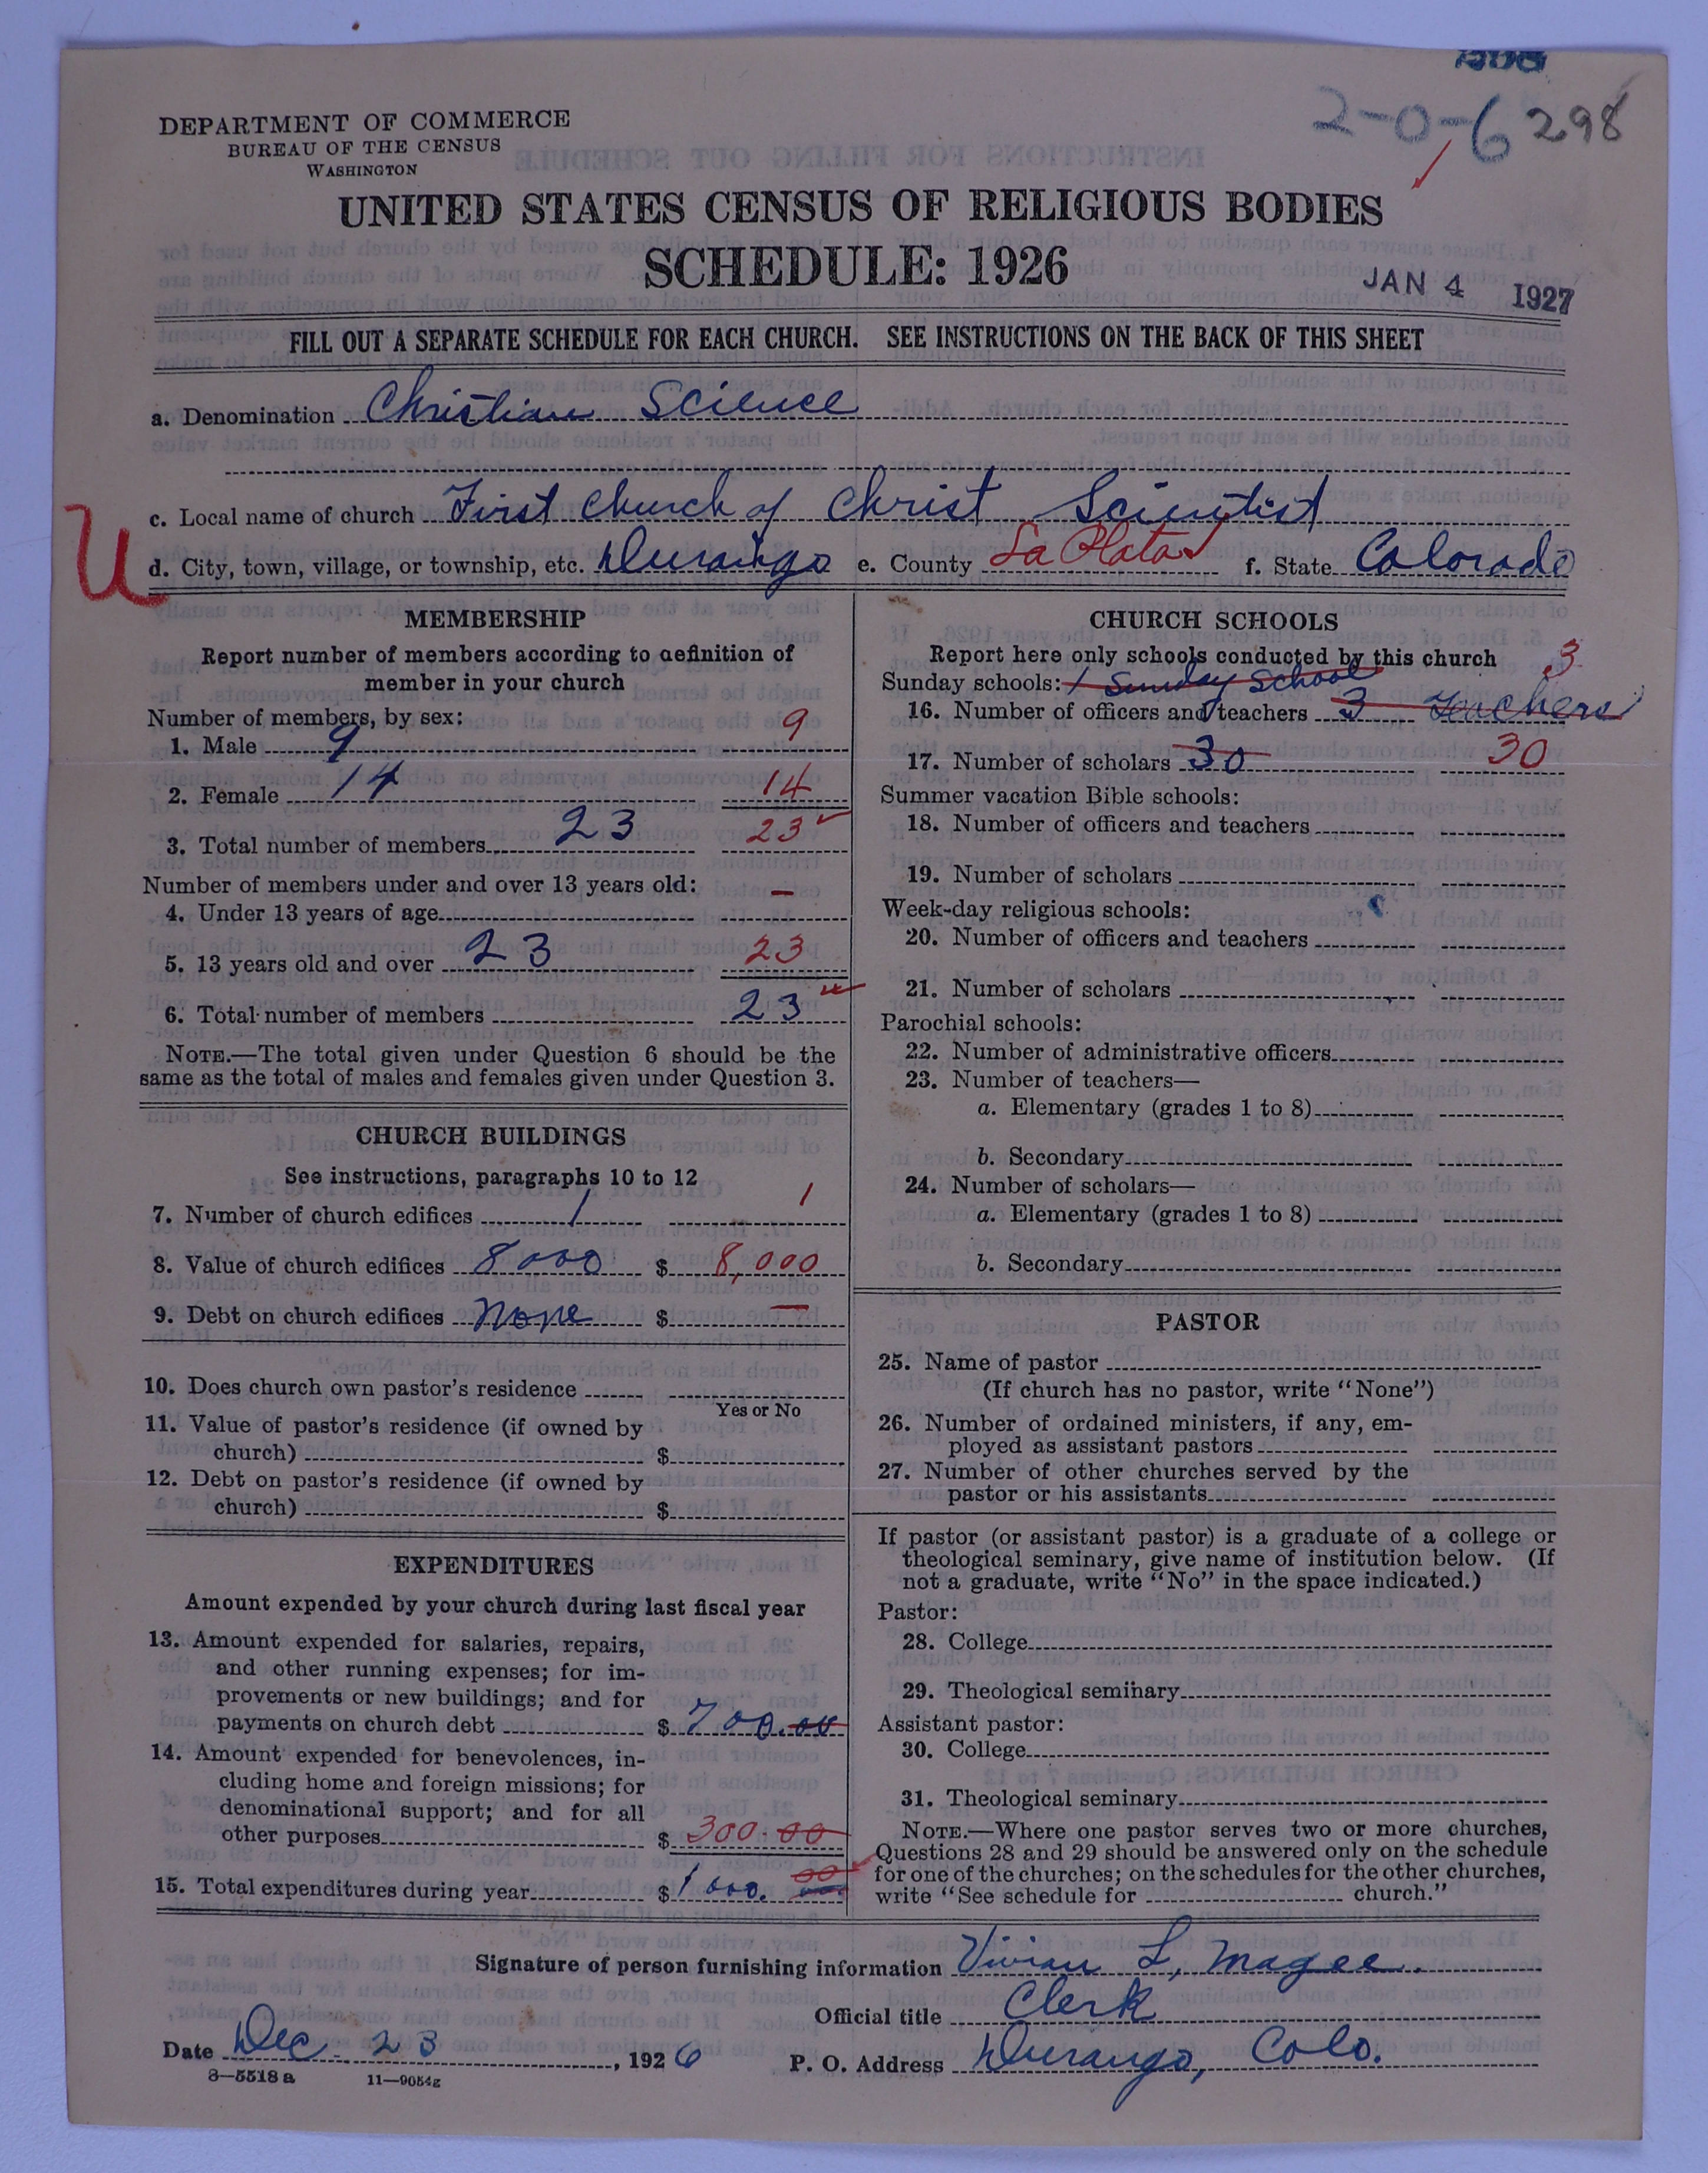 2-0-6 298
DEPARTMENT OF COMMERCE
BUREAU OF THE CENSUS
WASHINGTON
UNITED STATES CENSUS OF RELIGIOUS BODIES
SCHEDULE: 1926
JAN 4 1927
FILL OUT A SEPARATE SCHEDULE FOR EACH CHURCH. SEE INSTRUCTIONS ON THE BACK OF THIS SHEET
a. Denomination Christian Science
c. Local name of church First Church of Christ Scientist
U
d. City, town, village, or township, etc. Durango e. County La Plata f. State Colorado
MEMBERSHIP
Report number of members according to definition of
member in your church
Number of members, by sex:
1. Male 9 9
2. Female 14 14
3. Total number of members 23 23
Number of members under and over 13 years old:
4. Under 13 years of age —
5. 13 years old and over 23 23
6. Total number of members 23
NOTE.—The total given under Question 6 should be the
same as the total of males and females given under Question 3.
CHURCH BUILDINGS
See instructions, paragraphs 10 to 12
7. Number of church edifices 1 1
8. Value of church edifices 8000 $ 8,000
9. Debt on church edifices None $ —
10. Does church own pastor's residence
Yes or No
11. Value of pastor's residence (if owned by
church) $
12. Debt on pastor's residence (if owned by
church) $
EXPENDITURES
Amount expended by your church during last fiscal year
13. Amount expended for salaries, repairs,
and other running expenses; for im-
provements or new buildings; and for
payments on church debt $ 700.00
14. Amount expended for benevolences, in-
cluding home and foreign missions; for
denominational support; and for all
other purposes $ 300.00
15. Total expenditures during year $ 1000. 00
CHURCH SCHOOLS
Report here only schools conducted by this church
Sunday schools: 1 Sunday School 3
16. Number of officers and teachers 3 Teachers
17. Number of scholars 30 30
Summer vacation Bible schools:
18. Number of officers and teachers
19. Number of scholars
Week-day religious schools:
20. Number of officers and teachers
21. Number of scholars
Parochial schools:
22. Number of administrative officers
23. Number of teachers—
a. Elementary (grades 1 to 8)
b. Secondary
24. Number of scholars—
a. Elementary (grades 1 to 8)
b. Secondary
PASTOR
25. Name of pastor
(If church has no pastor, write "None")
26. Number of ordained ministers, if any, em-
ployed as assistant pastors
27. Number of other churches served by the
pastor or his assistants
If pastor (or assistant pastor) is a graduate of a college or
theological seminary, give name of institution below. (If
not a graduate, write "No" in the space indicated.)
Pastor:
28. College
29. Theological seminary
Assistant pastor:
30. College
31. Theological seminary
NOTE.—Where one pastor serves two or more churches,
Questions 28 and 29 should be answered only on the schedule
for one of the churches; on the schedules for the other churches,
write "See schedule for church."
Signature of person furnishing information Vivian L, Magee.
Official title Clerk
Date Dec. 23, 1926 P. O. Address Durango, Colo.
8—5518 a 11—9054g